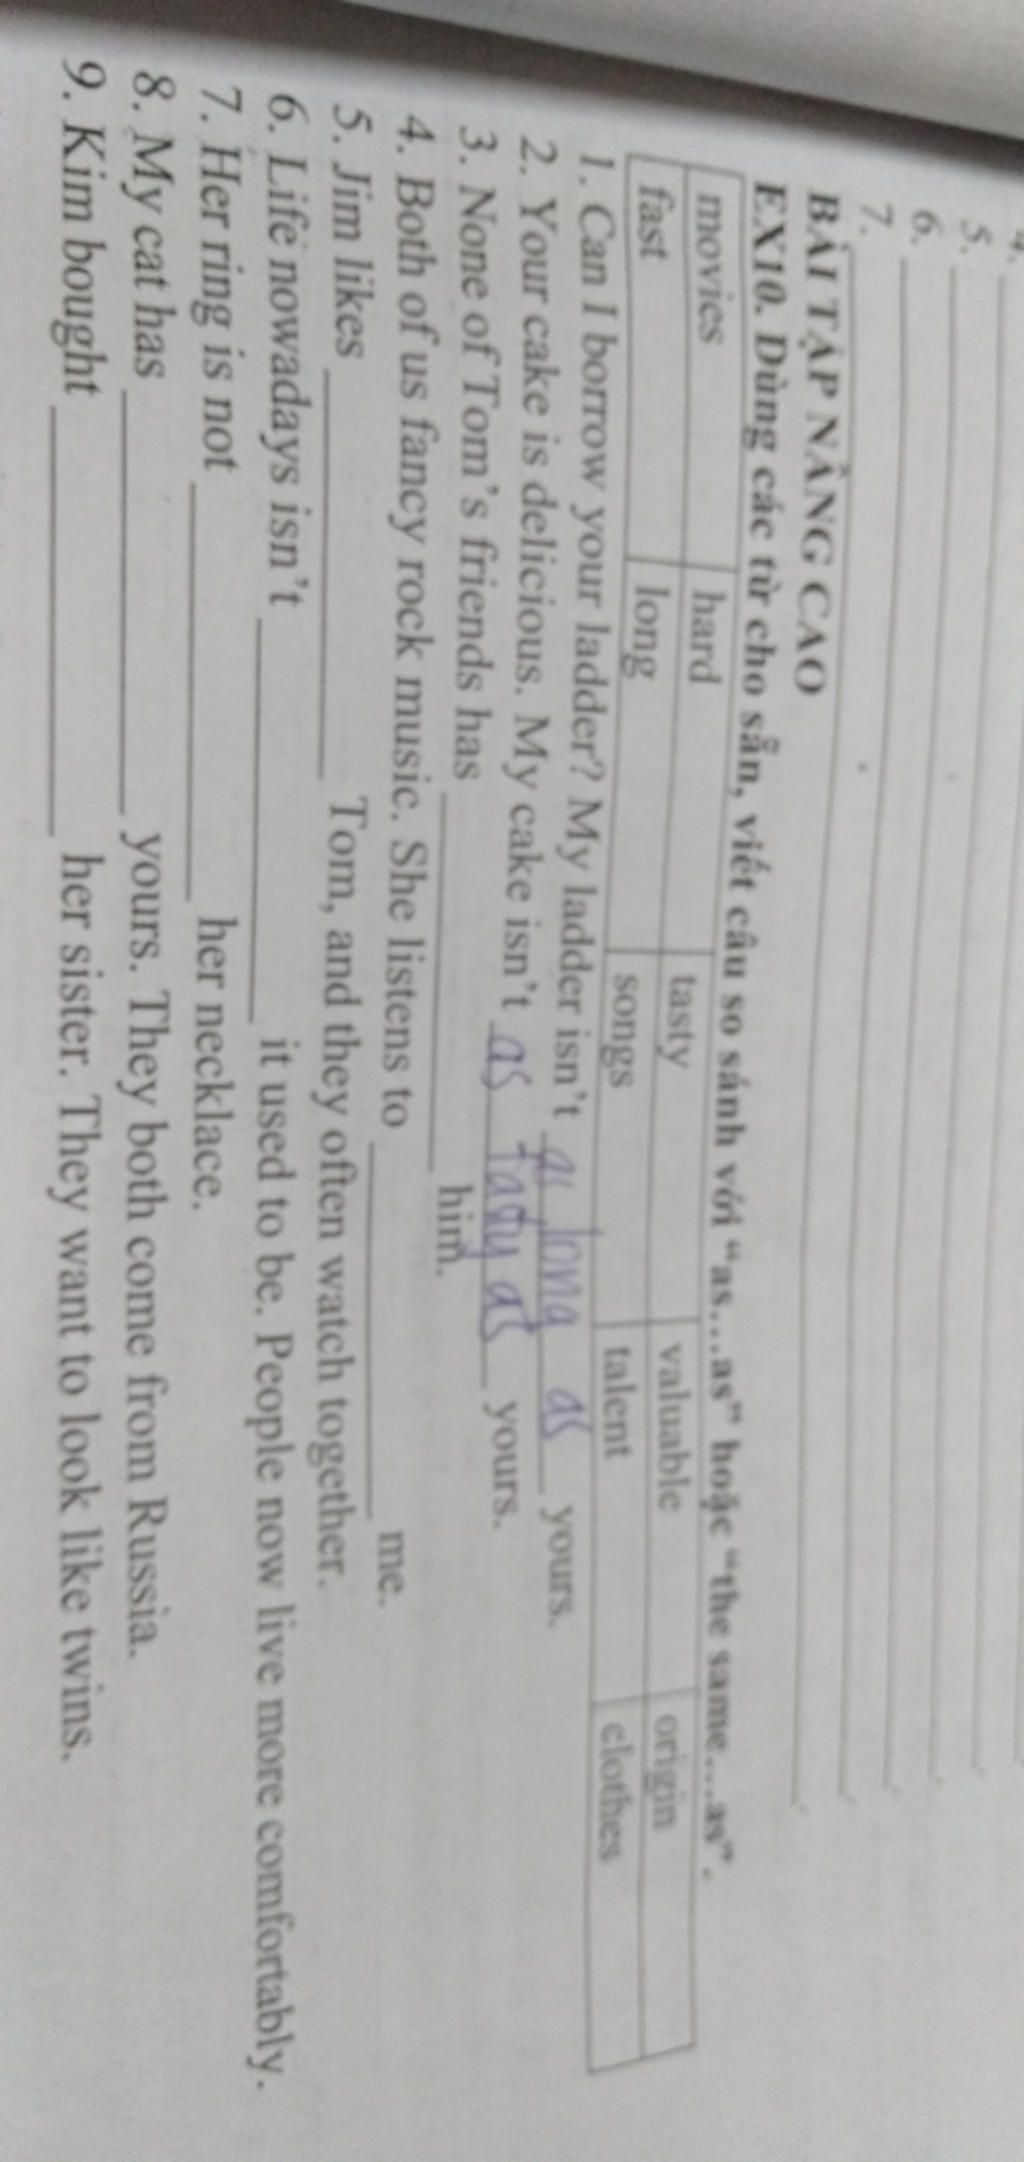 4.
5.
6.
7.
BÀI TẬP NÂNG CAO
EX10. Dùng các từ cho sẵn, viết câu so sánh với “as…as” hoặc “the same…as”.
movies hard tasty valuable origin
fast long songs talent clothes
1. Can I borrow your ladder? My ladder isn’t as long as yours.
2. Your cake is delicious. My cake isn’t as tasty as yours.
3. None of Tom’s friends has ____ him.
4. Both of us fancy rock music. She listens to ____ me.
5. Jim likes ____ Tom, and they often watch together.
6. Life nowadays isn’t ____ it used to be. People now live more comfortably.
7. Her ring is not ____ her necklace.
8. My cat has ____ yours. They both come from Russia.
9. Kim bought ____ her sister. They want to look like twins.